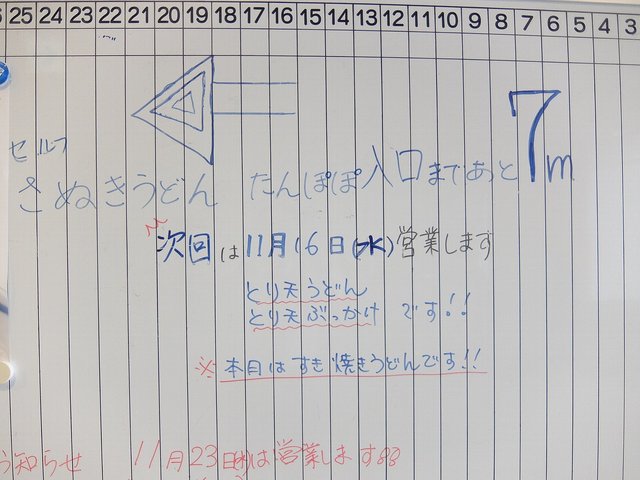 25 24 23 22 21 20 19 18 17 16 15 14 13 12 11 10 9 8 7 6 5 4 3
セルフ
さぬきうどん たんぽぽ入口まであと7m
次回は11月16日(水)営業します
とり天うどん
とり天ぶっかけ です!!
※本日はすき焼きうどんです!!
知らせ 11月23日(水)は営業します